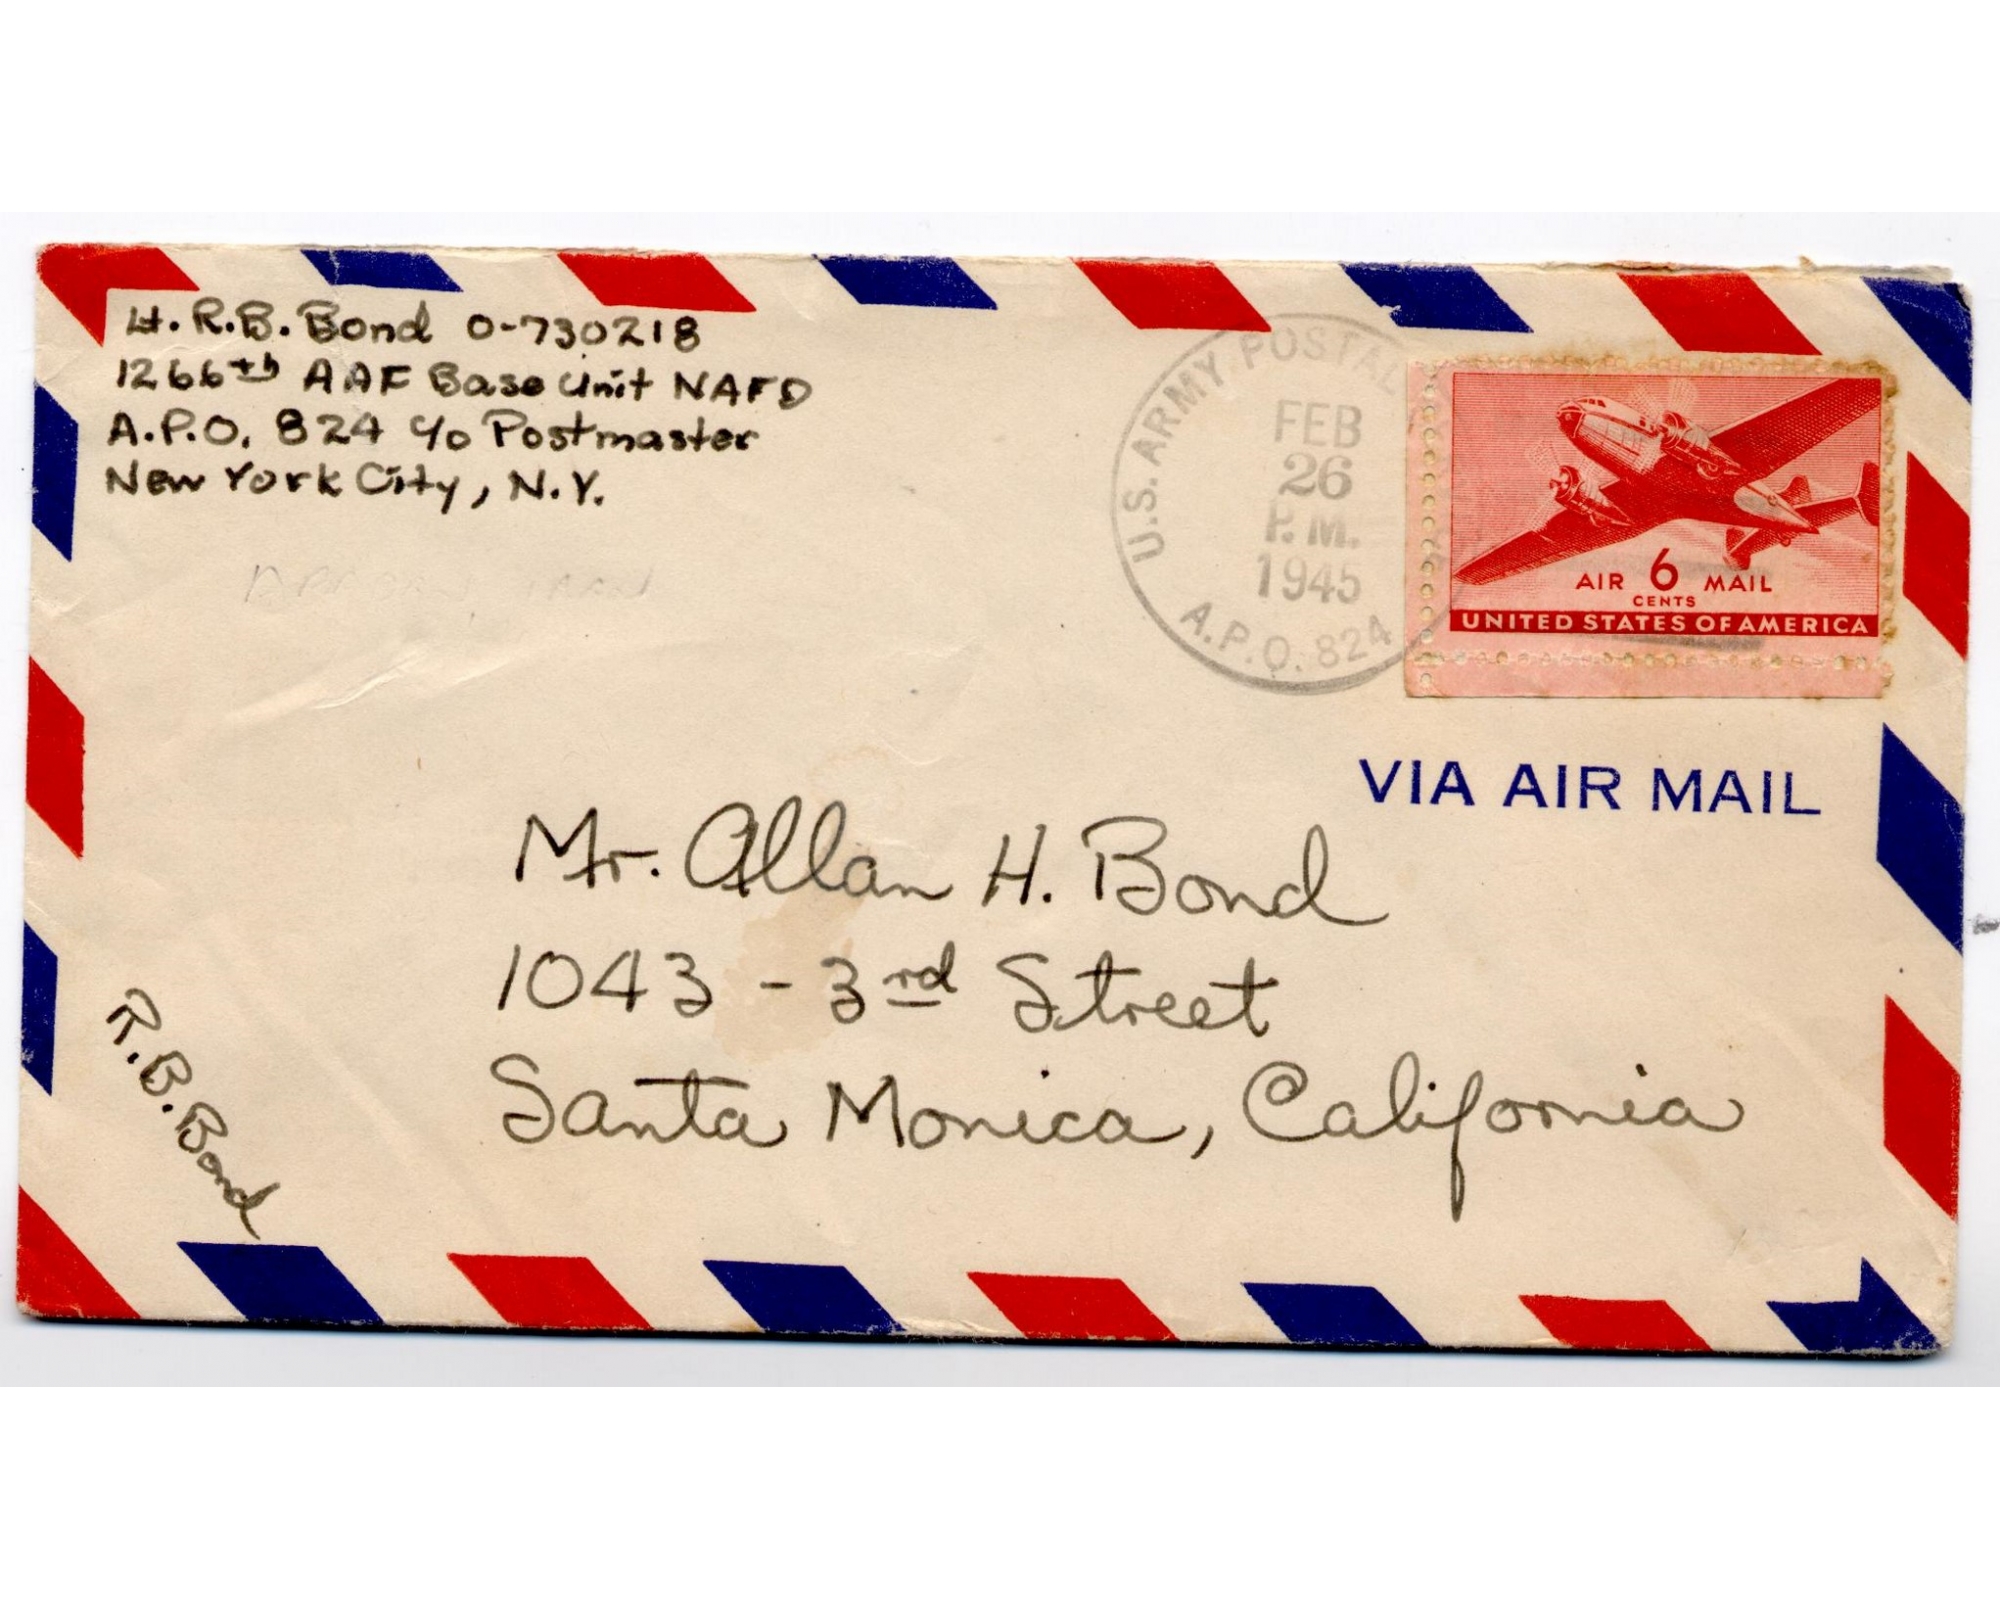 Lt. R.B. Bond O-730218
1266th AAF Base Unit NAFD
A.P.O. 824 c/o Postmaster
New York City, N.Y.
U.S. ARMY POSTAL
FEB
26
P.M.
1945
A.P.O. 824
AIR 6 MAIL
CENTS
UNITED STATES OF AMERICA
VIA AIR MAIL
Mr. Allan H. Bond
1043 - 3rd Street
Santa Monica, California
R.B. Bond